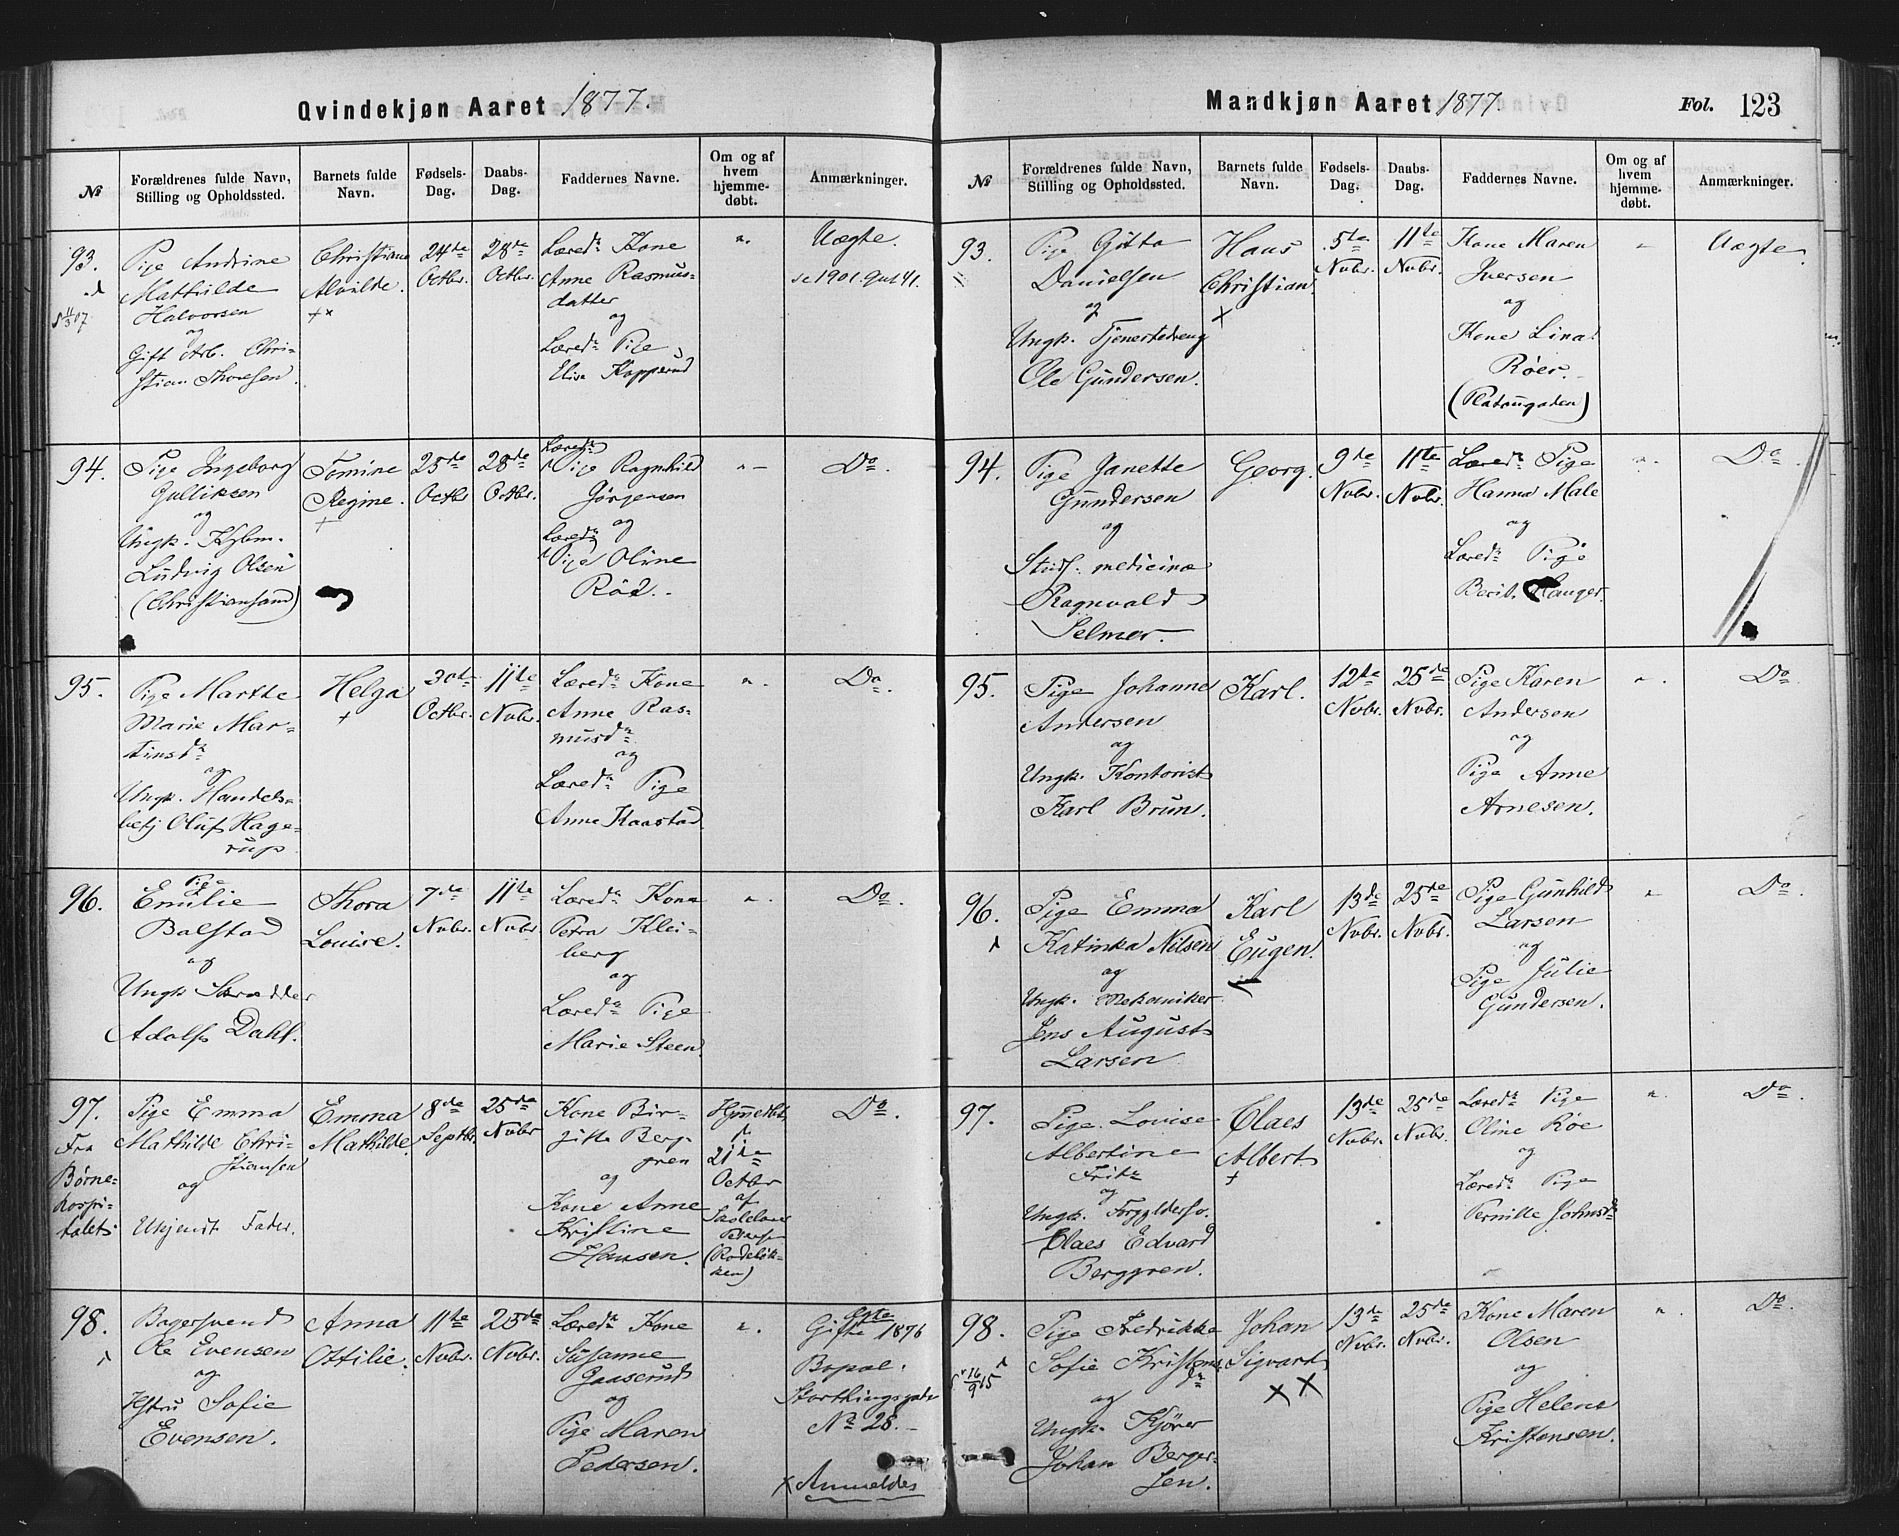 Qvindekjøn Aaret 1877.
№
Forældrenes fulde Navn,
Stilling og Opholdssted.
Barnets fulde
Navn.
Fødsels-
Dag.
Daabs-
Dag.
Faddernes Navne.
Om og af
hvem
hjemme-
døbt.
Anmærkninger.
93.
Pige Andrine
Mathilde
Halvorsen
og
Gift Arb. Chri-
stian Thoresen.
Christiane
Alvilde.
24de
Octbr.
28de
Octbr.
Læredr Kone
Anne Rasmus-
datter
og
Læredr Pige
Elise Kopperud
"
Uægte.
se 1901. Gut 41.
94.
Pige Ingeborg
Gulliksen
og
Ungk. Kjbm.
Ludvig Olsen
(Christiansand)
Tomine
Regine.
25de
Octbr.
28de
Octbr.
Læredr
Pige Ragnhild
Jørgensen
og
Læredr
Pige Oline
Röd.
"
Do.
95.
Pige Marthe
Marie Mar-
tinsdr
og
Ungk. Handels-
betj Oluf Hage-
rup.
Helga
30te
Octbr.
11te
Nvbr.
Læredr Kone
Anne Ras-
musdr
og
Læredr Pige
Anne Kaastad.
"
Do.
96.
Pige
Emilie
Balstad
og
Ungk Skrædder
Adolf Dahl.
Thora
Louise.
7de
Nvbr.
11te
Nvbr.
Læredr Kone
Petra Klei-
berg
og
Læredr Pige
Marie Steen.
"
Do.
97.
Fra
Børne-
hospi-
talet:
Pige Emma
Mathilde Chri-
stiansen
og
Ukjendt Fader.
Emma
Mathilde.
8de
Septbr.
25de
Nvbr
Kone Bir-
gitte Berg-
gren
og
Kone Anne
Kristine
Hansen.
21de
Octbr
af
(Rodeløk-
ken)
Do.
98.
Bagersvend
Ole Evensen
og
Hstru Sofie
Evensen.
Anna
Ottilie.
11te
Nvbr.
25de
Nvbr.
Læredr Kone
Susanne
Gaaserud
og
Pige Maren
Pedersen.
"
Egte
Gifte 1876
Bopæl.
Storthingsgade
No 28.
× Anmeldes
Mandkjøn Aaret 1877.
Fol. 123
№
Forældrenes fulde Navn,
Stilling og Opholdssted.
Barnets fulde
Navn.
Fødsels-
Dag.
Daabs-
Dag.
Faddernes Navne.
Om og af
hvem
hjemme-
døbt.
Anmærkninger.
93.
Pige Gitta
Danielsen
og
Ungk. Tjenestedreng
Ole Gundersen.
Hans
Christian.
5te
Nvbr.
11te
Nvbr.
Kone Maren
Iversen
og
Kone Lina
Röer.
(Platougaden)
"
Uægte.
94.
Pige Janette
Gundersen
og
Stud. medicinæ
Ragnvald
Selmer.
Georg.
9de
Nvbr.
11te
Nvbr.
Læredr Pige
Hanna Male
og
Læredr Pige
Berit Hauger.
"
Do.
95.
Pige Johanne
Andersen
og
Ungk. Kontorist
Karl Brun.
Karl.
12te
Nvbr.
25de
Nvbr.
Pige Karen
Andersen
og
Pige Anne
Arnesen.
"
Do.
96.
Pige Emma
Katinka Nilsen
og
Ungk. Mekaniker
Jens August
Larsen
Karl
Eugen.
13de
Nvbr.
25de
Nvbr.
Pige Gunhild
Larsen
og
Pige Julie
Gundersen.
"
Do.
97.
Pige Lovise
Albertine
Fritz
og
Ungk. Forgyldersv.
Claes Edvard
Berggren.
Claes
Albert
13de
Nvbr.
25de
Nvbr.
Læredr Pige
Oline Röe
og
Læredr Pige
Pernille Johnsdr
"
Do.
98.
Pige Fredrikke
Sofie Kristens-
dr
og
Ungk. Kjører
Johan Berger-
sen.
Johan
Sigvart
13de
Nvbr.
25de
Nvbr.
Kone Maren
Olsen
og
Pige Helene
Kristensen.
"
Do.